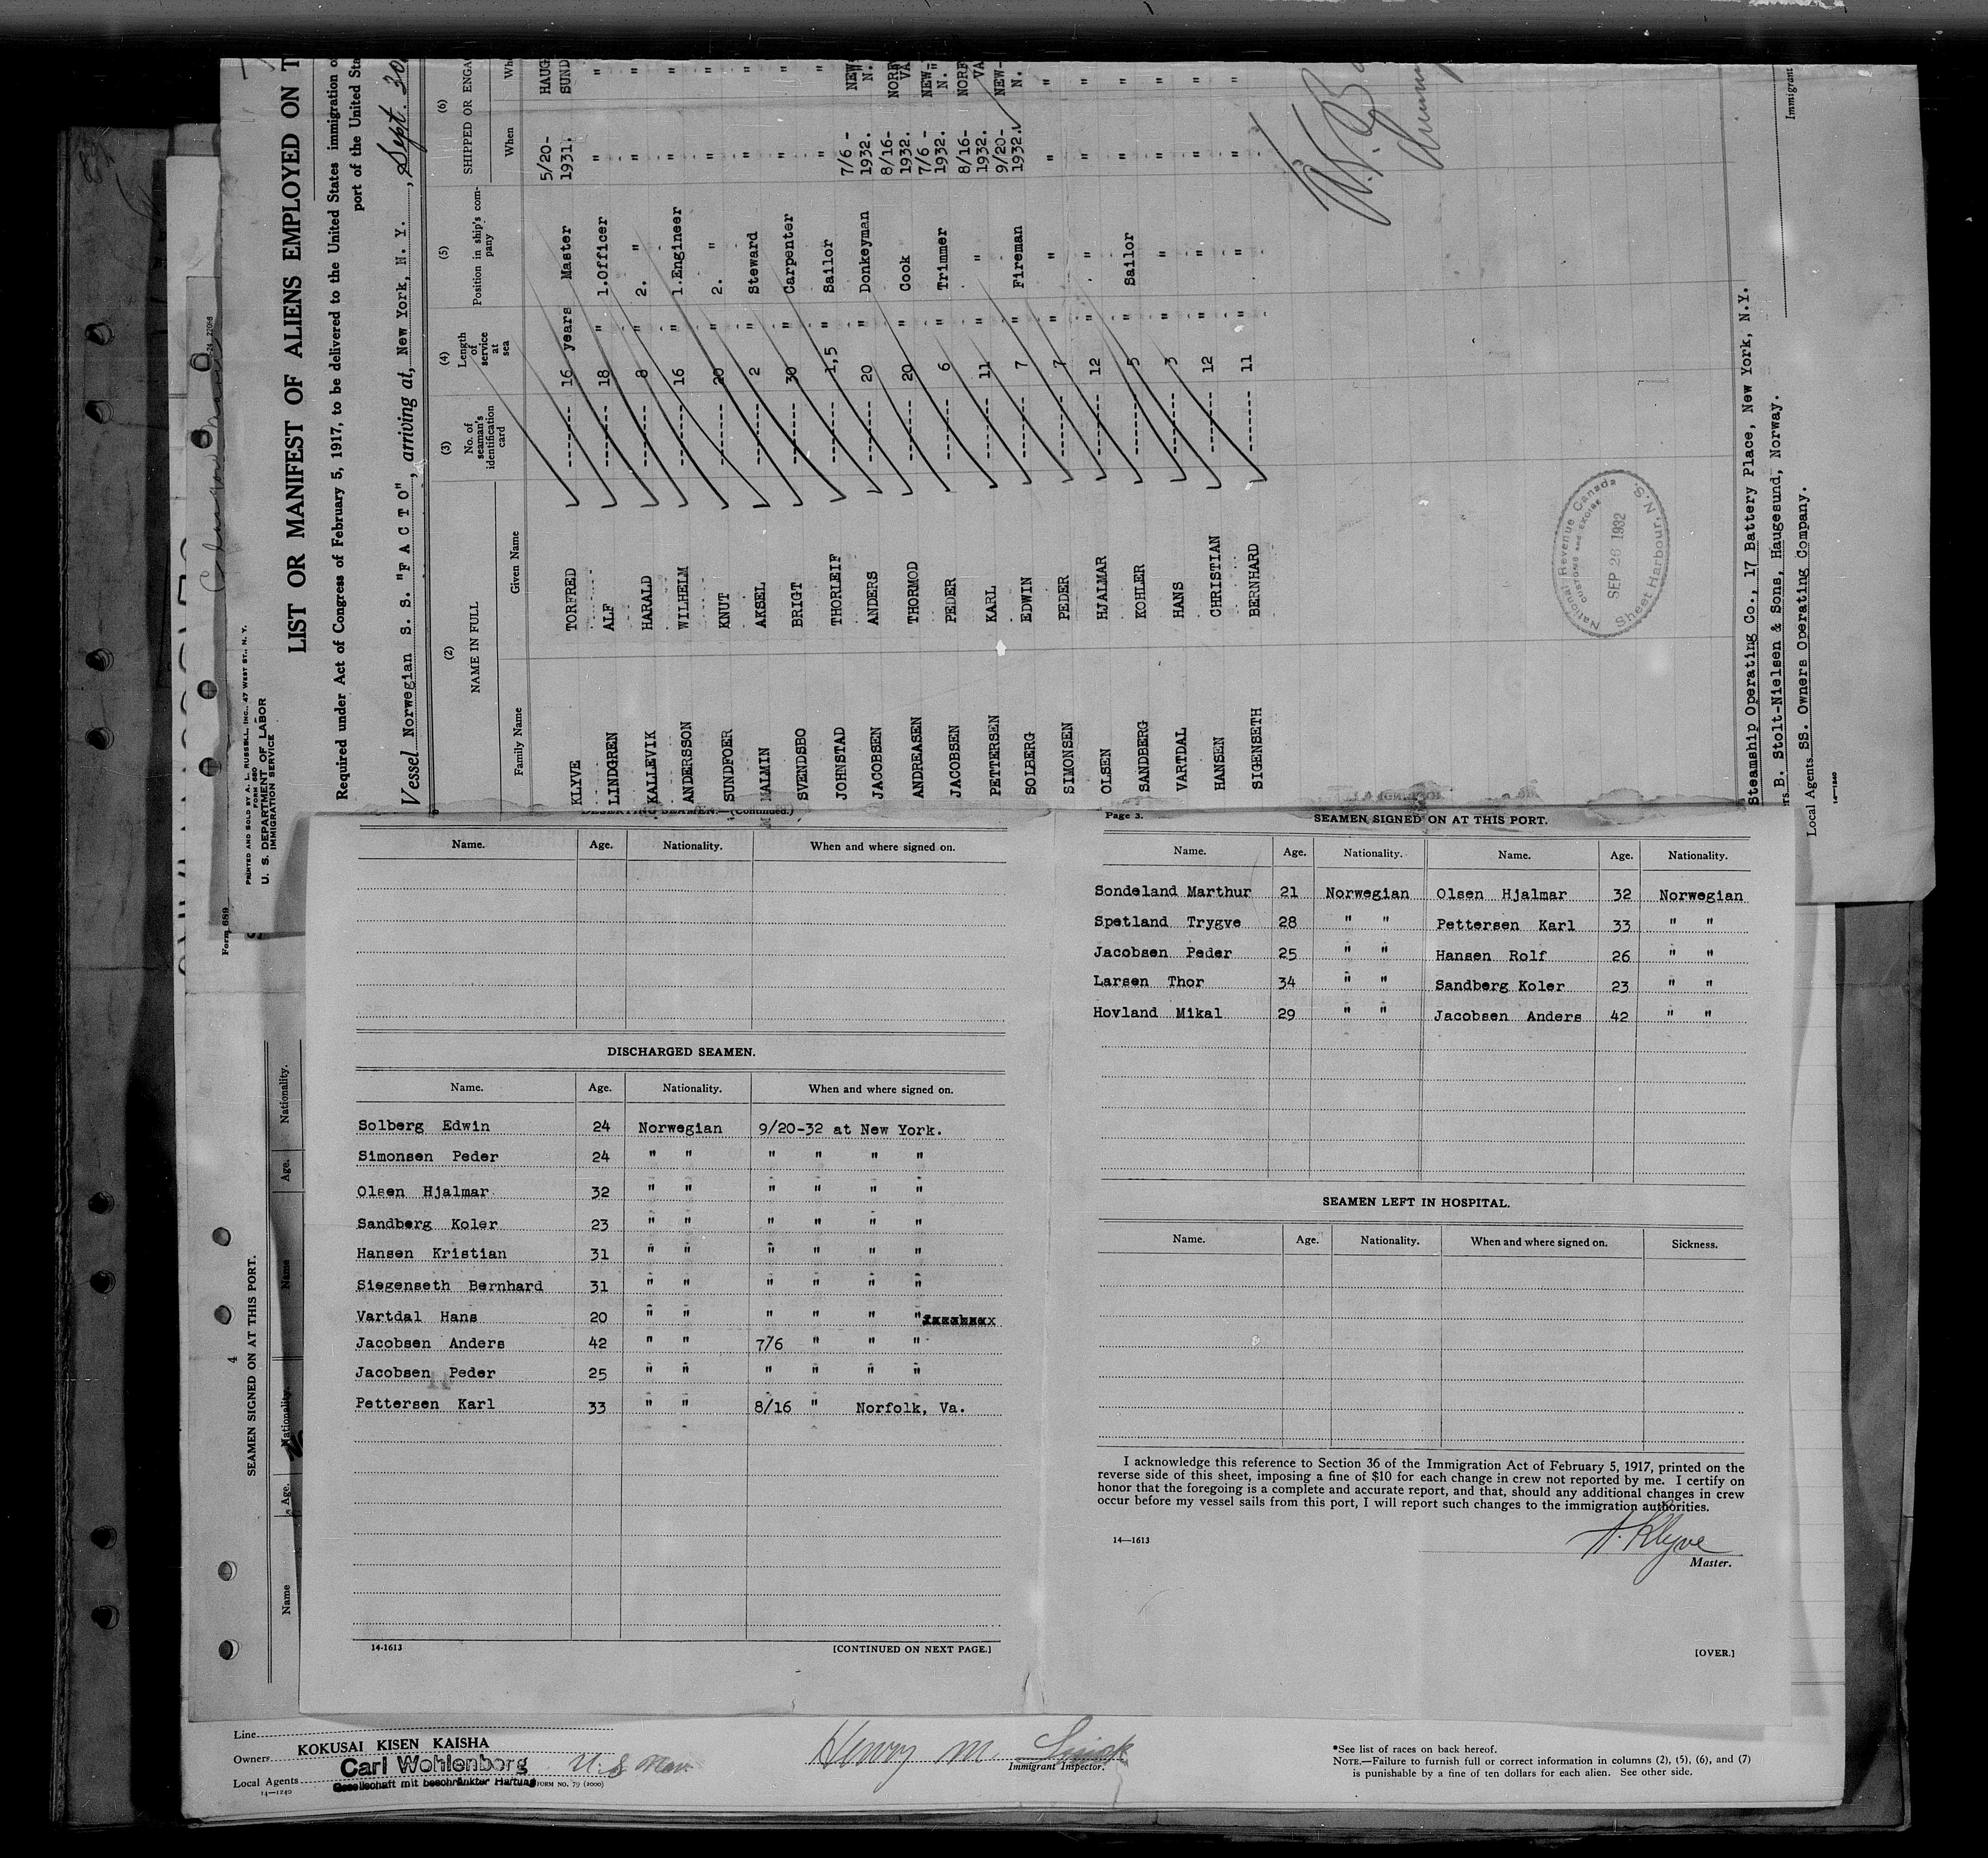 Form 689
PRINTED AND SOLD BY A. L. RUSSELL, INC., 47 WEST ST., N. Y.
FORM 680
U. S. DEPARTMENT OF LABOR
IMMIGRATION SERVICE
LIST OR MANIFEST OF ALIENS EMPLOYED ON T
Required under Act of Congress of February 5, 1917, to be delivered to the United States immigration o
port of the United Sta
Vessel Norwegian S. S. "F A C T O", arriving at, New York, N. Y., Sept. 30
(2) (3) (4) (5) (6)
NAME IN FULL No. of seaman's identification card Length of service at sea Position in ship's company SHIPPED OR ENGA
Family Name Given Name When Wh
KLYVE TORFRED -------- 16 years Master 5/20-1931. HAUG SUND
LINDGREN ALF -------- 18 " 1.Officer " "
KALLEVIK HARALD -------- 8 " 2. " " "
ANDERSSON WILHELM -------- 16 " 1.Engineer " "
SUNDFOER KNUT -------- 20 " 2. " " "
MALMIN AKSEL -------- 2 " Steward " "
SVENDSBO BRIGT -------- 30 " Carpenter " "
JOHNSTAD THORLEIF -------- 1,5 " Sailor " "
JACOBSEN ANDERS -------- 20 " Donkeyman 7/6 - 1932. NEW- N.
ANDREASEN THORMOD -------- 20 " Cook 8/16- 1932. NORF VA
JACOBSEN PEDER -------- 6 " Trimmer 7/6 - 1932. NEW- N.
PETTERSEN KARL -------- 11 " " 8/16- 1932. NORF VA
SOLBERG EDWIN -------- 7 " Fireman 9/20- 1932. NEW- N.
SIMONSEN PEDER -------- 7 " " " "
OLSEN HJALMAR -------- 12 " " " "
SANDBERG KOHLER -------- 5 " Sailor " "
VARTDAL HANS -------- 3 " " " "
HANSEN CHRISTIAN -------- 12 " " " "
SIGENSETH BERNHARD -------- 11 " " " "
National Revenue Canada
CUSTOMS and EXCISE
SEP 26 1932
Sheet Harbour, N.S.
Steamship Operating Co., 17 Battery Place, New York, N.Y.
rs. B. Stolt-Nielsen & Sons, Haugesund, Norway.
Local Agents SS. Owners Operating Company.
14—1240
Immigrant
DESERTING SEAMEN.—(Continued.)
Name. Age. Nationality. When and where signed on.
DISCHARGED SEAMEN.
Name. Age. Nationality. When and where signed on.
Solberg Edwin 24 Norwegian 9/20-32 at New York.
Simonsen Peder 24 " " " " " "
Olsen Hjalmar 32 " " " " " "
Sandberg Koler 23 " " " " " "
Hansen Kristian 31 " " " " " "
Siegenseth Bernhard 31 " " " " " "
Vartdal Hans 20 " " " " " "
Jacobsen Anders 42 " " 7/6 " " "
Jacobsen Peder 25 " " " " " "
Pettersen Karl 33 " " 8/16 " Norfolk, Va.
14-1613
[CONTINUED ON NEXT PAGE.]
Page 3.
SEAMEN SIGNED ON AT THIS PORT.
Name. Age. Nationality. Name. Age. Nationality.
Sondeland Marthur 21 Norwegian Olsen Hjalmar 32 Norwegian
Spetland Trygve 28 " " Pettersen Karl 33 " "
Jacobsen Peder 25 " " Hansen Rolf 26 " "
Larsen Thor 34 " " Sandberg Koler 23 " "
Hovland Mikal 29 " " Jacobsen Anders 42 " "
SEAMEN LEFT IN HOSPITAL.
Name. Age. Nationality. When and where signed on. Sickness.
I acknowledge this reference to Section 36 of the Immigration Act of February 5, 1917, printed on the
reverse side of this sheet, imposing a fine of $10 for each change in crew not reported by me. I certify on
honor that the foregoing is a complete and accurate report, and that, should any additional changes in crew
occur before my vessel sails from this port, I will report such changes to the immigration authorities.
14—1613
T. Klyve
Master.
[OVER.]
4
SEAMEN SIGNED ON AT THIS PORT.
Name Age. Nationality. Name Age. Nationality.
Line
Owners KOKUSAI KISEN KAISHA
Local Agents Carl Wohlenborg
Gesellschaft mit beschränkter Haftung
FORM NO. 79 (2000)
14—1240
Henry M.
Immigrant Inspector.
*See list of races on back hereof.
NOTE.—Failure to furnish full or correct information in columns (2), (5), (6), and (7)
is punishable by a fine of ten dollars for each alien. See other side.